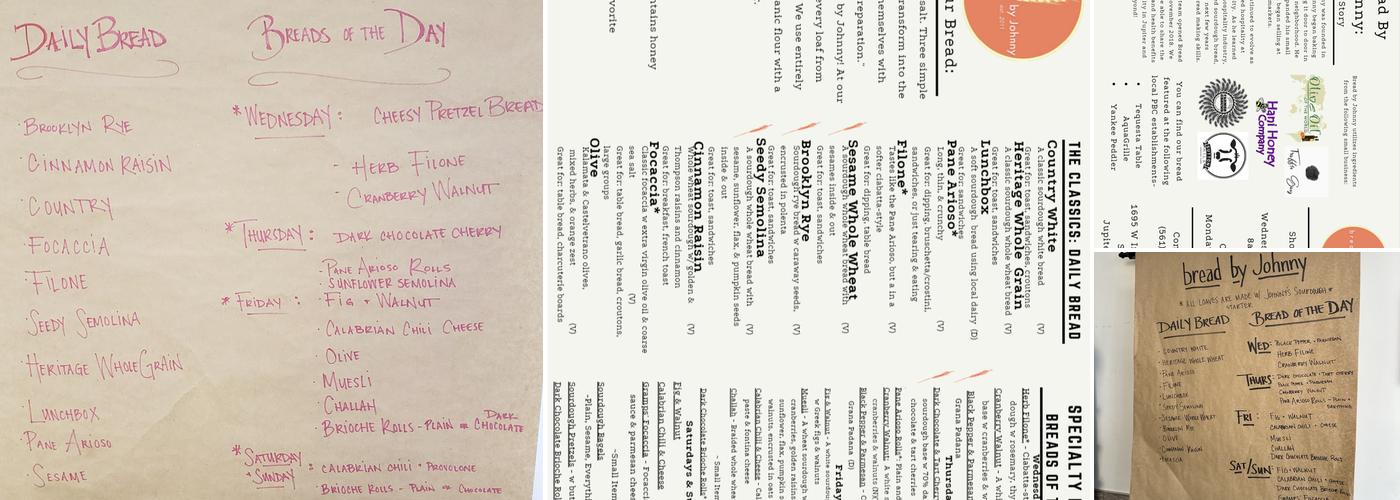 DAILY BREAD
BREADS OF THE DAY
· BROOKLYN RYE
· CINNAMON RAISIN
· COUNTRY
· FOCACCIA
· FILONE
· SEEDY SEMOLINA
· HERITAGE WHOLEGRAIN
· LUNCHBOX
· PANE ARIOSO
· SESAME
* WEDNESDAY: CHEESY PRETZEL BREAD
HERB FILONE
CRANBERRY WALNUT
* THURSDAY: DARK CHOCOLATE CHERRY
PANE ARIOSO ROLLS
SUNFLOWER SEMOLINA
* FRIDAY: FIG + WALNUT
· CALABRIAN CHILI CHEESE
· OLIVE
· MUESLI
· CHALLAH
BRIOCHE ROLLS - PLAIN OR DARK CHOCOLATE
* SATURDAY
SUNDAY: CALABRIAN CHILI + PROVOLONE
· BRIOCHE ROLLS - PLAIN OR CHOCOLATE
by Johnny
est. 2011
r Bread:
salt. Three simple
transform into the
hemselves with
reparation."
by Johnny! At our
every loaf from
. We use entirely
anic flour with a
ntains honey
vorite
THE CLASSICS: DAILY BREAD
Country White
A classic sourdough white bread (V)
Great for: toast, sandwiches, croutons
Heritage Whole Grain
A classic sourdough whole wheat bread (V)
Great for: toast, sandwiches
Lunchbox
A soft sourdough bread using local dairy (D)
Great for: sandwiches
Pane Arioso*
Long, thin, & crunchy (V)
Great for: dipping, bruschetta/crostini,
sandwiches, or just tearing & eating
Filone*
Tastes like the Pane Arioso, but a in a
softer ciabatta-style (V)
Great for: dipping, table bread
Sesame Whole Wheat
A sourdough whole wheat bread with
sesames inside & out (V)
Great for: toast, sandwiches
Brooklyn Rye
Sourdough rye bread w caraway seeds,
encrusted in polenta (V)
Great for: toast, sandwiches
Seedy Semolina
A sourdough whole wheat bread with
sesame, sunflower, flax, & pumpkin seeds
inside & out (V)
Great for: toast, sandwiches
Cinnamon Raisin
Whole wheat sourdough w/ golden &
Thompson raisins and cinnamon (V)
Great for: breakfast, french toast
Focaccia*
Classic focaccia w extra virgin olive oil & coarse
sea salt (V)
Great for: table bread, garlic bread, croutons,
large groups
Olive
Kalamata & Castelvetrano olives,
mixed herbs, & orange zest (V)
Great for: table bread, charcuterie boards
SPECIALTY
BREADS OF
Wednesd
Herb Filone* - Ciabatta-st
dough w rosemary, thy
Cranberry Walnut - A whi
base w cranberries & w
Black Pepper & Parmesan
Grana Padana
Thursda
Dark Chocolate & Tart Cherry
sourdough base w 70% da
chocolate & tart cherries
Pane Arioso Rolls* - Plain
Cranberry Walnut - A white s
cranberries & walnuts (N)(
Black Pepper & Parmesan - C
Grana Padana (D)
Friday
Fig & Walnut - A white sourdou
w Greek figs & walnuts
Muesli - A wheat sourdough w
cranberries, golden raisins,
sunflower, flax, pumpkin s
walnuts, encrusted in oats
Calabrian Chili & Cheese - Cal
paste & fontina cheese
Challah - Braided whole whea
Dark Chocolate Brioche Rolls*
- Small Item
Saturdays & Su
Fig & Walnut
Calabrian Chili & Cheese
Gramps' Focaccia
sauce & parmesan chees
-Small Item
Sourdough Bagels
-Plain, Sesame, Everythi
Sourdough Pretzels - w but
Dark Chocolate Brioche Rol
ad By
nny:
Story
Bread by Johnny utilizes ingredients
from the following small business:
Olive Oil
OF THE WORLD
Hani Honey
Company
You can find our bread
featured at the following
local PBC establishments-
• Tequesta Table
• AquaGrille
• Yankee Peddler
Sho
Wednes
8a
Monda
Con
(561)
1695 W I
Jupite
bread by Johnny
* ALL LOAVES ARE MADE W/ JOHNNY'S SOURDOUGH *
STARTER
DAILY BREAD
· COUNTRY WHITE
· HERITAGE WHOLE WHEAT
· PANE ARIOSO
· FILONE
· LUNCHBOX
· SEEDY SEMOLINA
· SESAME WHOLE WHEAT
· BROOKLYN RYE
· OLIVE
· CINNAMON RAISIN
· FOCACCIA
BREAD OF THE DAY
WED: · BLACK PEPPER + PARMESAN
HERB FILONE
CRANBERRY WALNUT
THURS: · DARK CHOCOLATE + TART CHERRY
BLACK PEPPER + PARMESAN
CRANBERRY WALNUT
PANE ARIOSO ROLLS - PLAIN +
EVERYTHING
FRI: · FIG + WALNUT
CALABRIAN CHILI + CHEESE
MUESLI
CHALLAH
DARK CHOCOLATE BRIOCHE ROLLS
SAT/SUN: FIG + WALNUT
CALABRIAN CHILI + CHEESE